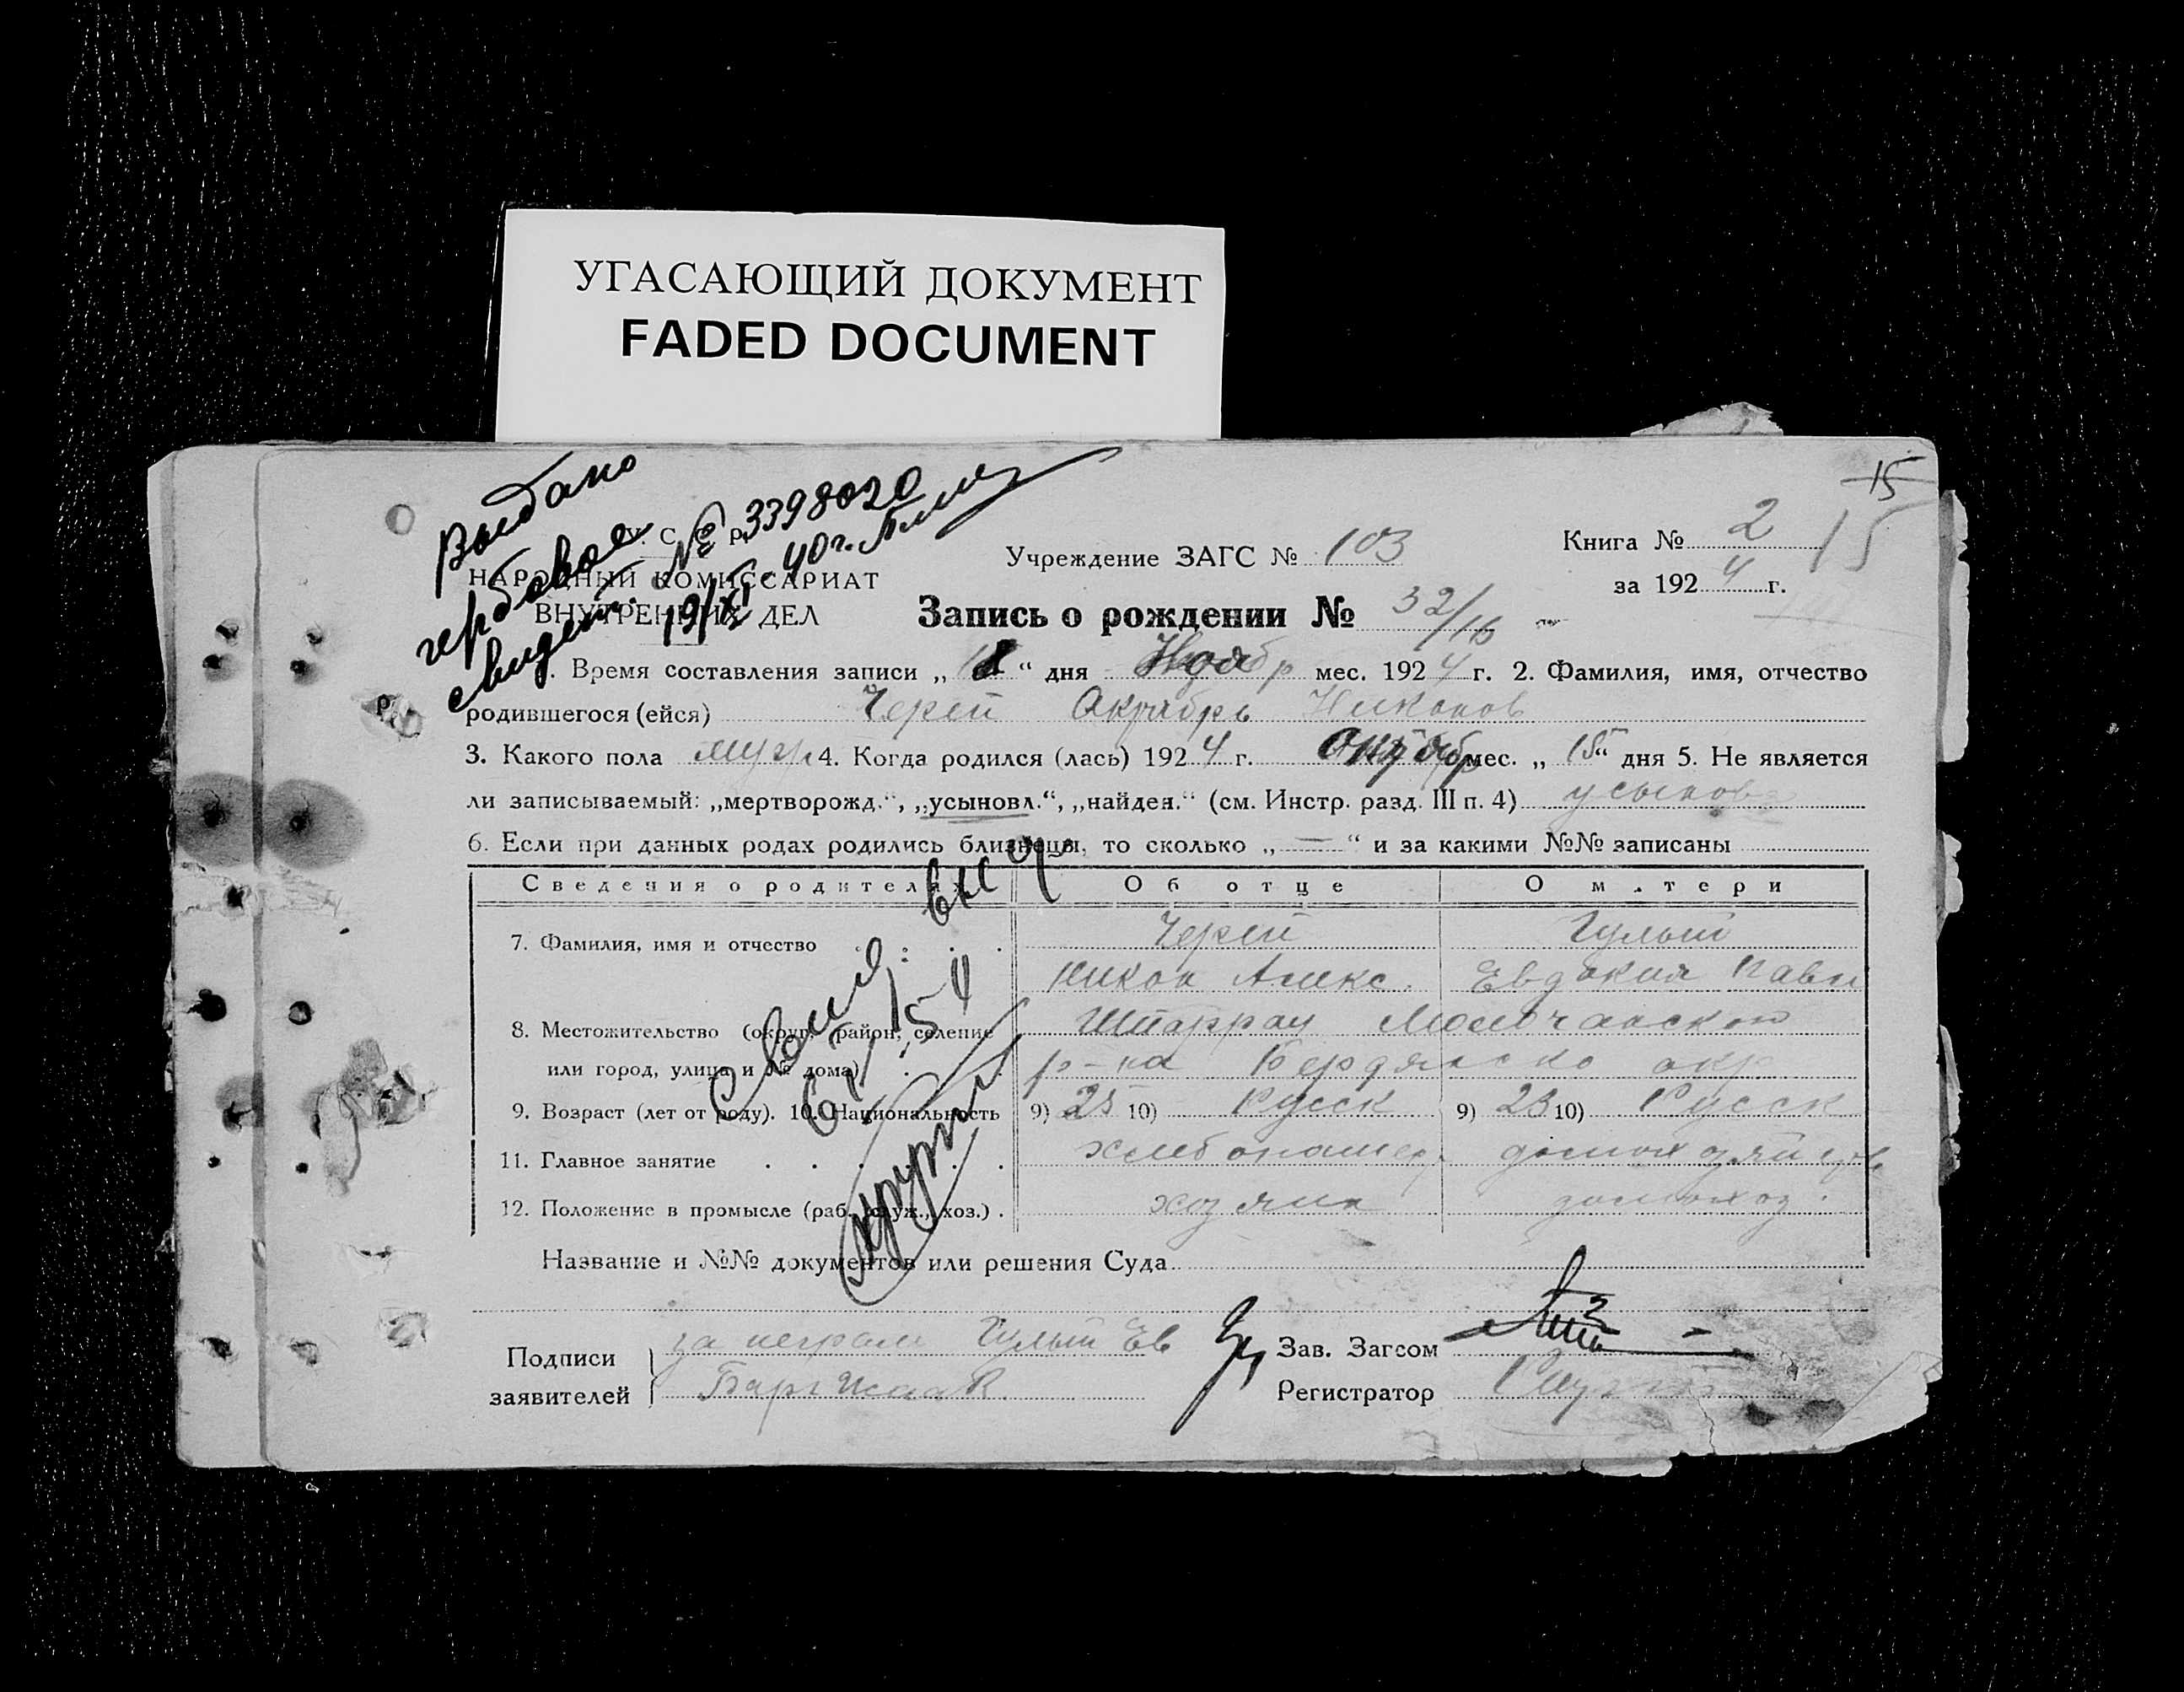 УГАСАЮЩИЙ ДОКУМЕНТ
FADED DOCUMENT
15
Выдано
гербовое
свидет. № 3398020
19/XI 40 г.
У. С. С. Р.
НАРОДНЫЙ КОМИССАРИАТ
ВНУТРЕННИХ ДЕЛ
Учреждение ЗАГС № 103
Книга № 2
15
за 1924 г.
Запись о рождении № 32/16
1. Время составления записи „18“ дня Ноябр мес. 1924 г. 2. Фамилия, имя, отчество
родившегося (ейся) Черей Октябрь Никонов
3. Какого пола муж 4. Когда родился (лась) 1924 г. Октябр мес. „15“ дня 5. Не является
ли записываемый: „мертворожд.“, „усыновл.“, „найден.“ (см. Инстр. разд. III п. 4) усынов
6. Если при данных родах родились близнецы, то сколько „—“ и за какими №№ записаны
Сведения о родителях Об отце О матери
7. Фамилия, имя и отчество Черей Гулый
Никон Алекс. Евдокия Павл
8. Местожительство (округ, район, селение Молочанского
или город, улица и № дома) р-на Бердянско окр.
9. Возраст (лет от роду). 10. Национальность 9) 25 10) Русск 9) 23 10) Русск
11. Главное занятие хлебопашец домохозяйств
12. Положение в промысле (раб., служ., хоз.) хозяин домохоз.
Название и №№ документов или решения Суда
Подписи заявителей
за неграм Гулый Ев
Зав. Загсом
Регистратор